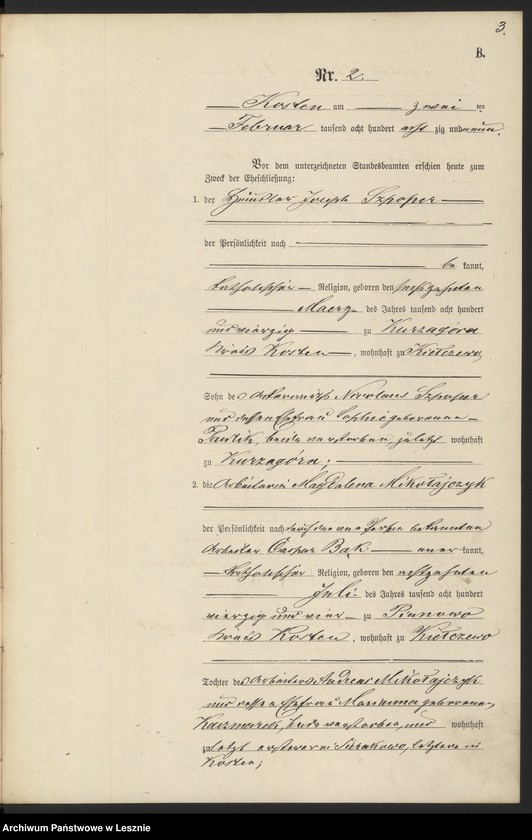 3.
B.
Nr. 2.
Kosten am zwei ten
Februar tausend acht hundert acht zig und neun.
Vor dem unterzeichneten Standesbeamten erschien heute zum
Zweck der Eheschließung:
1. der Häusler Joseph Szposer
der Persönlichkeit nach
be kannt,
katholischer Religion, geboren den sechszehnten
Maerz des Jahres tausend acht hundert
und vierzig zu Kurzagóra
Kreis Kosten, wohnhaft zu Kiełczewo
Sohn des Ackerwirths Nicolaus Szposer
und dessen Ehefrau Sophie geborenen
beide verstorben, zuletzt wohnhaft
zu Kurzagóra;
2. die Arbeiterin Magdalena Mikołajczyk
der Persönlichkeit nach durch den von Person bekannten
Arbeiter Caspar Bąk aner kannt,
katholischer Religion, geboren den achtzehnten
Juli des Jahres tausend acht hundert
vierzig und vier zu
Kreis Kosten, wohnhaft zu Kiełczewo
Tochter des Arbeiters Andreas Mikołajczyk
und dessen Ehefrau Marianna geborenen
Kaczmarek, beide verstorben, und wohnhaft
zuletzt ersterer in Sierakowo, letztere in
Kosten;
Archiwum Państwowe w Lesznie